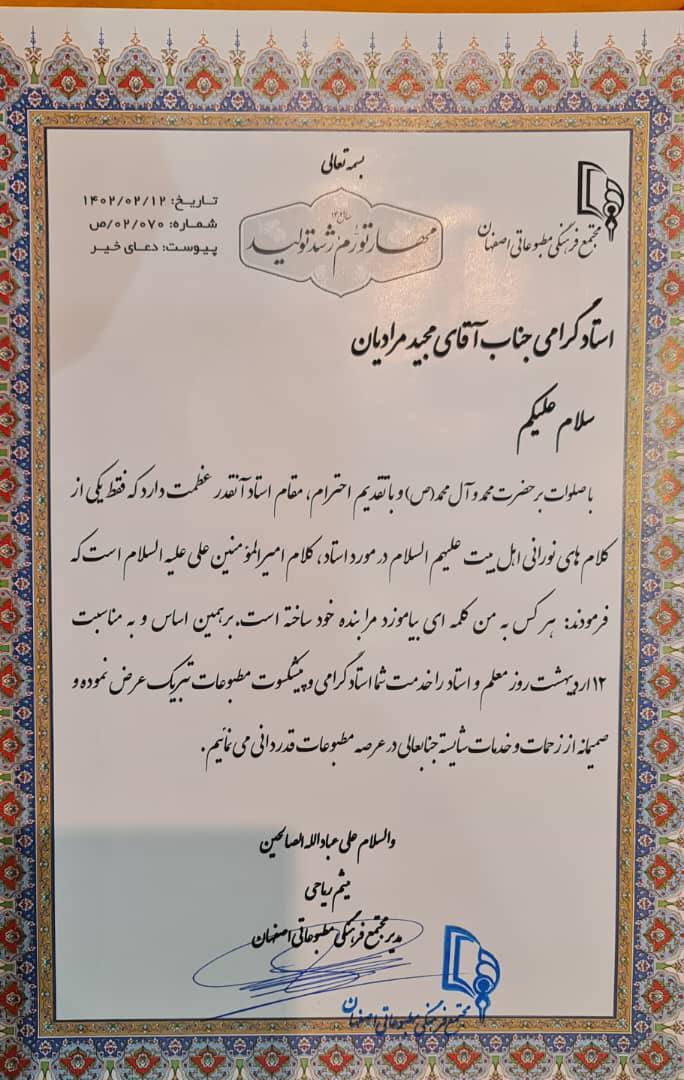 بسمه تعالی
مجتمع فرهنگی مطبوعاتی اصفهان
تاریخ: ۱۴۰۲/۰۲/۱۲
شماره: ۰۲/۰۷۰/ص
پیوست: دعای خیر
مهار تورم رشد تولید
استاد گرامی جناب آقای مجید مرادیان
سلام علیکم
با صلوات بر حضرت محمد و آل محمد (ص) و با تقدیم احترام، مقام استاد آنقدر عظمت دارد که فقط یکی از
کلام های نورانی اهل بیت علیهم السلام در مورد استاد، کلام امیرالمؤمنین علی علیه السلام است که
فرمودند: هر کس به من کلمه ای بیاموزد مرا بنده خود ساخته است. بر همین اساس و به مناسبت
۱۲ اردیبهشت روز معلم و استاد را خدمت شما استاد گرامی و پیشکسوت مطبوعات تبریک عرض نموده و
صمیمانه از زحمات و خدمات شایسته جنابعالی در عرصه مطبوعات قدردانی می نمائیم.
والسلام علی عبادالله الصالحین
میثم ریاحی
مدیر مجتمع فرهنگی مطبوعاتی اصفهان
مجتمع فرهنگی مطبوعاتی اصفهان